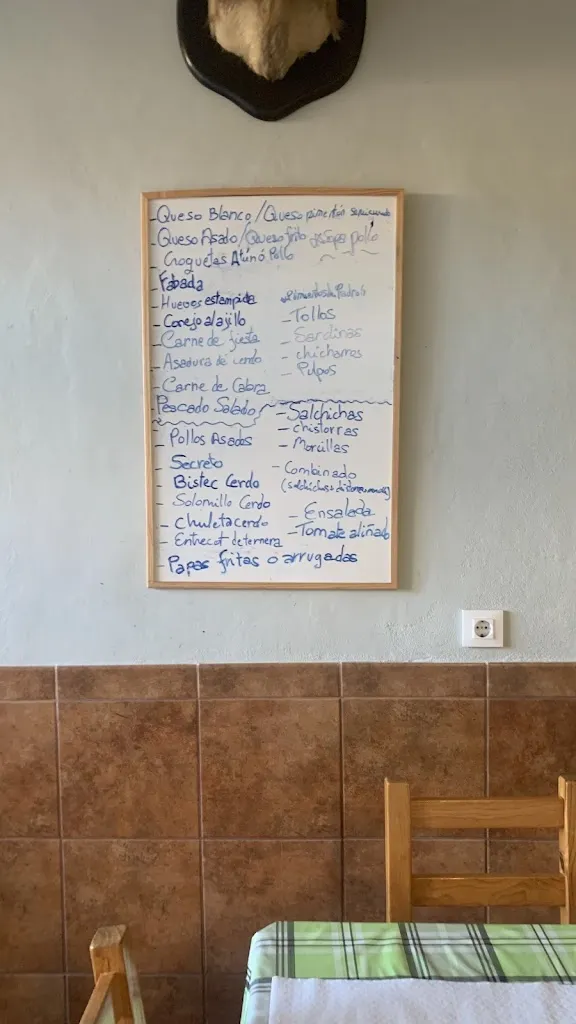 - Queso Blanco / Queso pimentón semicurado
- Queso Asado / Queso frito Sopa pollo
- Croquetas Atún ó Pollo
- Fabada
- Huevos estampida
- Conejo al ajillo
- Carne de fiesta
- Asadura de cerdo
- Carne de Cabra
- Pescado Salado
- Pimientos de Padrón
- Tollos
- Sardinas
- chicharros
- Pulpos
- Pollos Asados
- Secreto
- Bistec Cerdo
- Solomillo Cerdo
- Chuleta cerdo
- Entrecot de ternera
- Salchichas
- chistorras
- Morcillas
- Combinado
- Ensalada
- Tomate aliñado
- Papas fritas o arrugadas